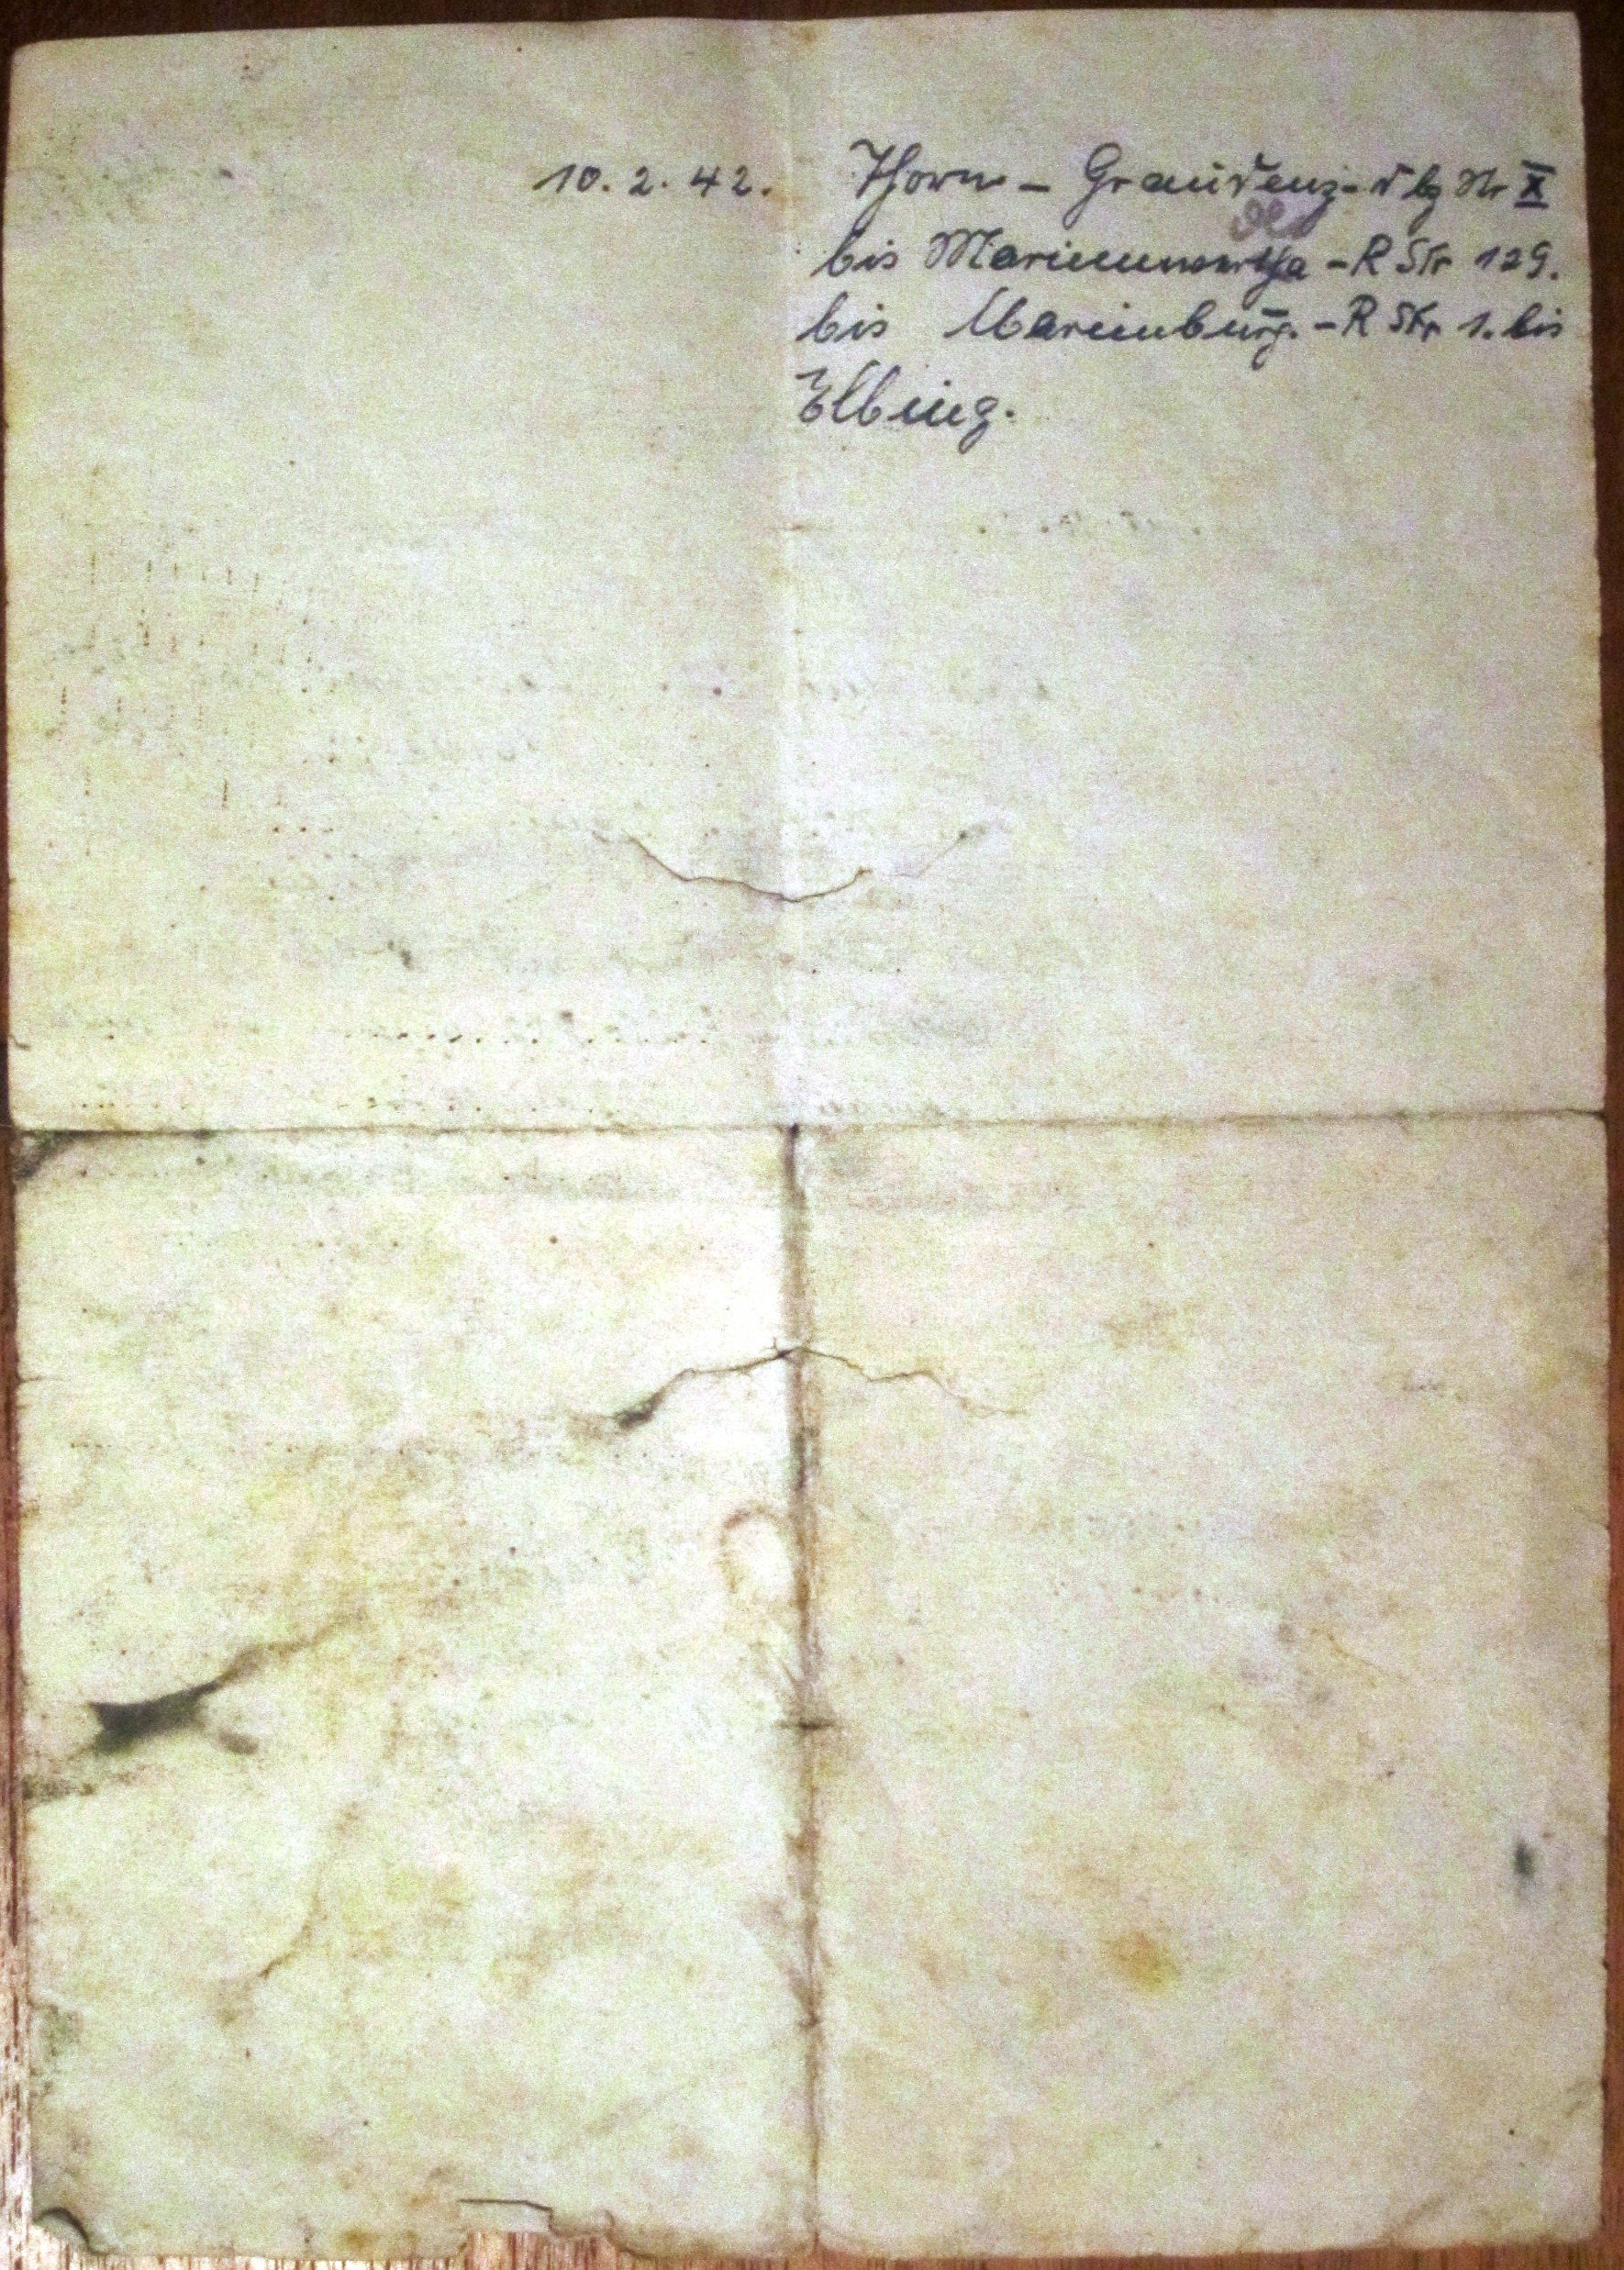 10. 2. 42. Thorn – Graudenz – dlg Nr X
bis Marienwerder – R Str 129.
bis Marienburg. – R Str 1. bis
Elbing.